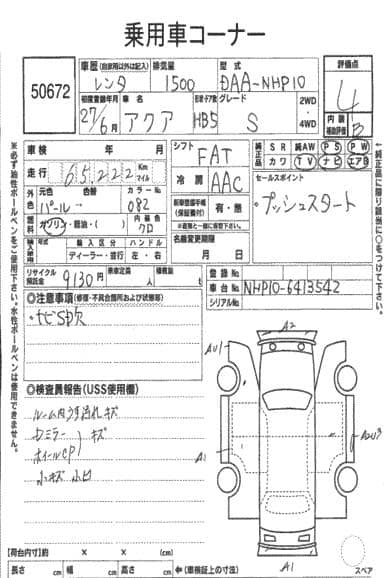 乗用車コーナー
50672
車歴(自家用以外は記入) 排気量 型式 評価点
レンタ 1500 DAA-NHP10 4
初度登録年月 車名 形状・ドア数 グレード 2WD 内装補助評価
27/6月 アクア HB5 S 4WD B
車検 年 月 シフト FAT 純正品 SR 純AW PS PW
カワ TV ナビ エアB
走行 65,222 Km マイル
冷房 AAC セールスポイント
プッシュスタート
外色 元色 色替 カラーNo.
パール→ 082
燃料 ガソリン・軽油・( ) 内装色 クロ
新車整備手帳(保証書付) 有・無
名義変更期限 月 日
輸入車 年式 輸入区分 ハンドル
ディーラー・並行 左・右
リサイクル預託金 9130円 乗車定員 人 積載量 t
登録No.
車台No. NHP10-6413542
シリアルNo.
◎注意事項(修復・不具合箇所および状態等)
・ナビSD欠
◎検査員報告(USS使用欄)
ルーム内ウす汚れ キズ
Dミラー キズ
ホイールCP
小キズ 小凹
A2
AU1
A1
AU3
A1
スペア
【荷台内寸】 × × (cm)
長さ cm 幅 cm 高さ cm ←(車検証上の寸法)
※必ず油性ボールペンをご使用下さい。水性ボールペンは使用できません。
←純正品に限り該当に○をつけて下さい。